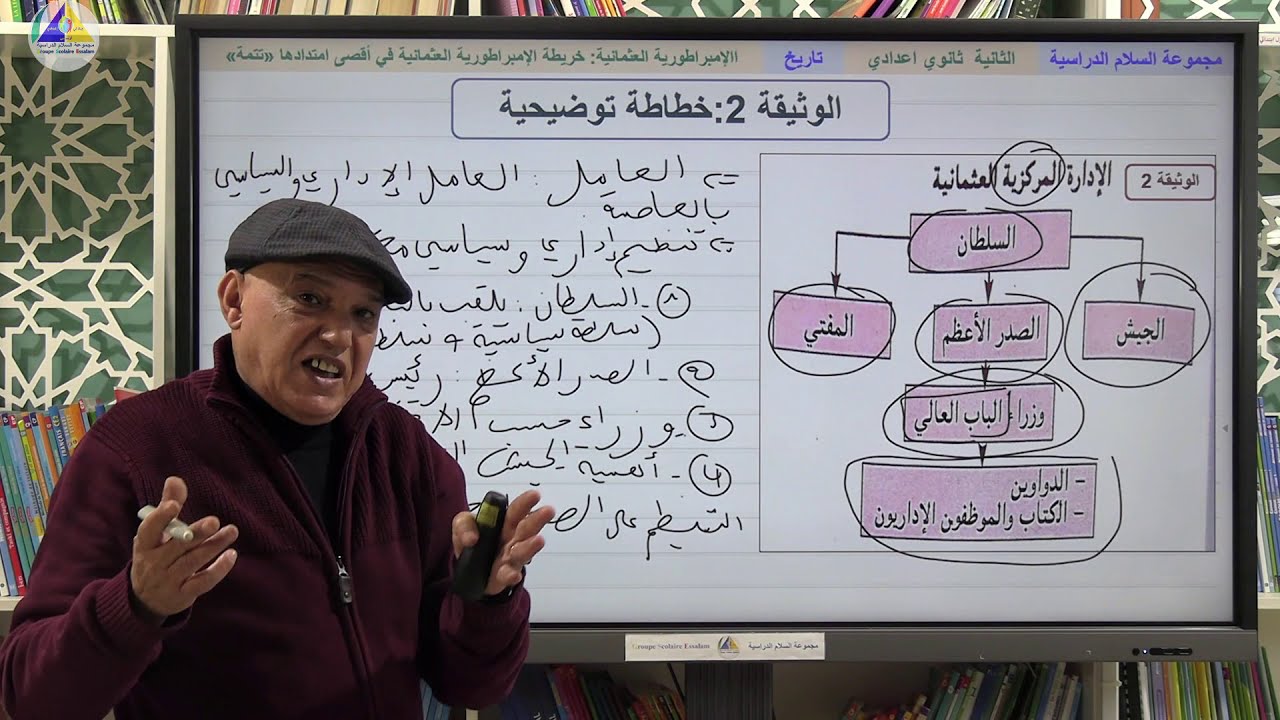 مجموعة السلام الدراسية
Groupe Scolaire Essalam
مجموعة السلام الدراسية
الثانية ثانوي اعدادي
تاريخ
الامبراطورية العثمانية: خريطة الإمبراطورية العثمانية في أقصى امتدادها «تتمة»
الوثيقة 2:خطاطة توضيحية
الوثيقة 2
الإدارة المركزية العثمانية
السلطان
الجيش
الصدر الأعظم
المفتي
وزراء الباب العالي
- الدواوين
- الكتاب والموظفون الإداريون
العامل: العامل الإداري والسياسي
بالعاصمة
تنظيم إداري وسياسي
السلطان: يلقب
(سلطة سياسية +
الصدر الأعظم: رئيس
وزراء حسب
أهمية الجيش
التنظيم على
Groupe Scolaire Essalam
مجموعة السلام الدراسية